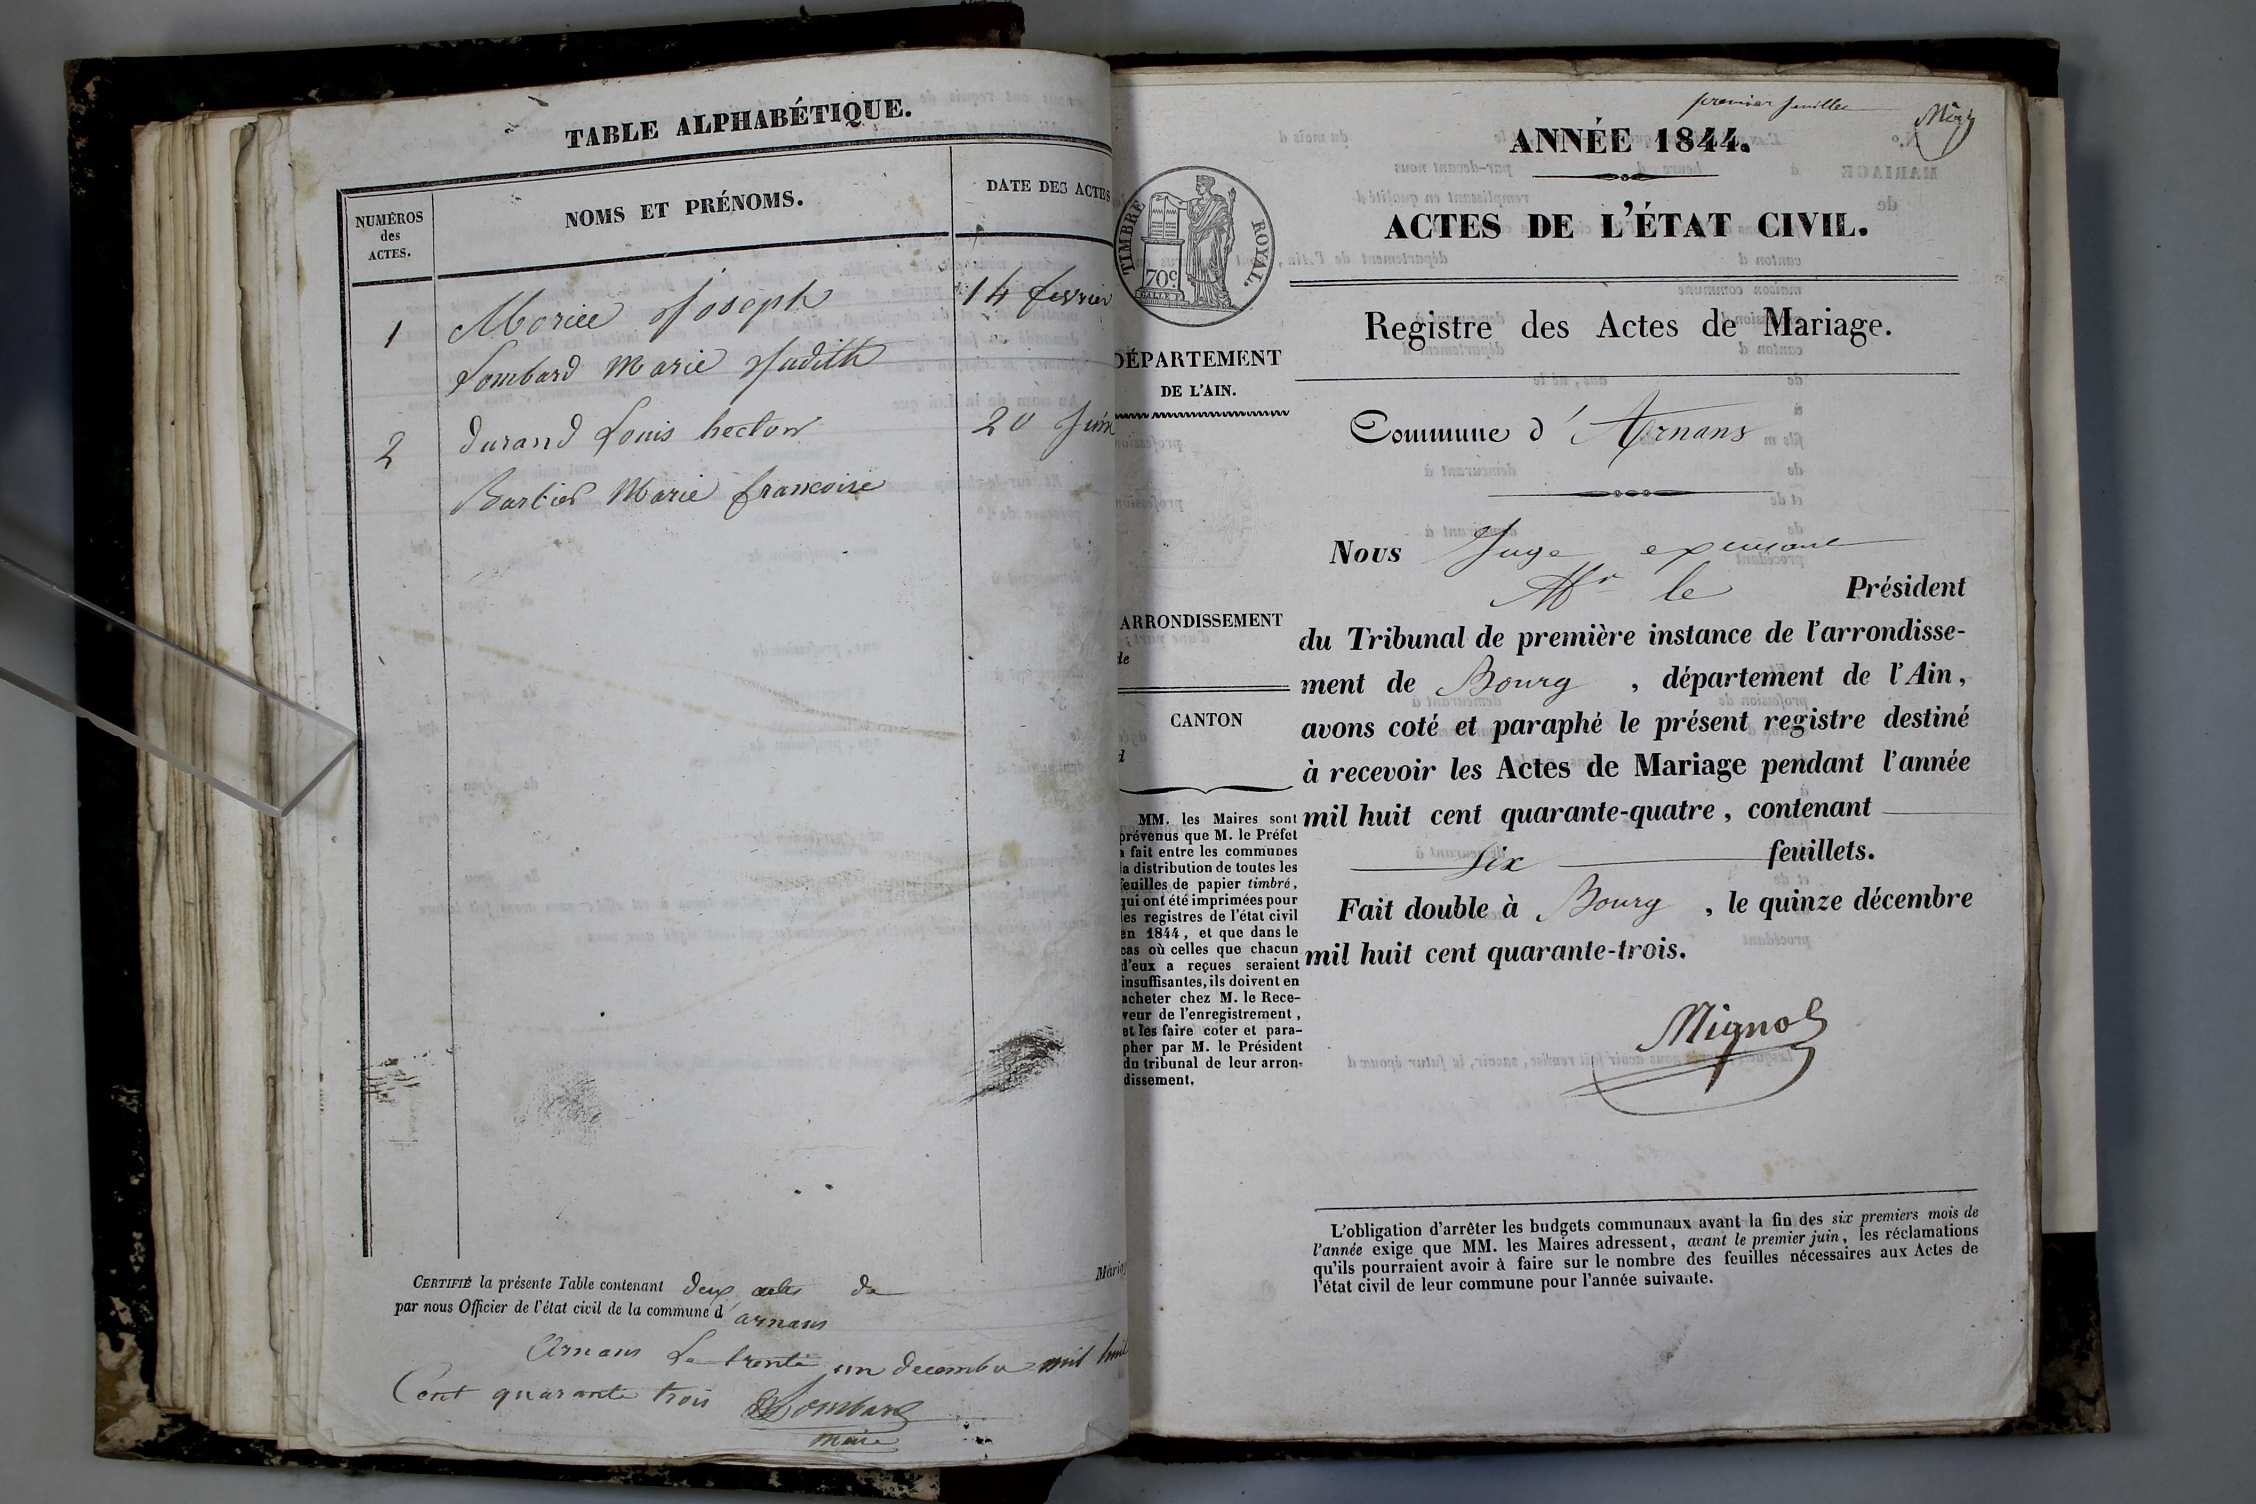 TABLE ALPHABÉTIQUE.
NUMÉROS
des
ACTES.
NOMS ET PRÉNOMS.
DATE DES ACTES
1 Joseph 14 fevrier
Lombard Marie Judith
2 durand Louis hector 20 Juin
Barbier Marie francoise
CERTIFIÉ la présente Table contenant deux actes de Mariag
par nous Officier de l'état civil de la commune d' arnans
Arnans Le trente un decembre mil huit
Cent quarante trois Lombard
maire
premier feuillet
ANNÉE 1844.
ACTES DE L'ÉTAT CIVIL.
TIMBRE ROYAL.
70c
DÉPARTEMENT
DE L'AIN.
Registre des Actes de Mariage.
Commune d' Arnans
Nous Juge
Mr le Président
ARRONDISSEMENT
de
CANTON
d
du Tribunal de première instance de l'arrondisse-
ment de Bourg , département de l'Ain,
avons coté et paraphé le présent registre destiné
à recevoir les Actes de Mariage pendant l'année
mil huit cent quarante-quatre, contenant
six feuillets.
Fait double à Bourg , le quinze décembre
mil huit cent quarante-trois.
Mignot
MM. les Maires sont
prévenus que M. le Préfet
a fait entre les communes
la distribution de toutes les
feuilles de papier timbré,
qui ont été imprimées pour
les registres de l'état civil
en 1844, et que dans le
cas où celles que chacun
d'eux a reçues seraient
insuffisantes, ils doivent en
acheter chez M. le Rece-
veur de l'enregistrement,
et les faire coter et para-
pher par M. le Président
du tribunal de leur arron-
dissement.
L'obligation d'arrêter les budgets communaux avant la fin des six premiers mois de
l'année exige que MM. les Maires adressent, avant le premier juin, les réclamations
qu'ils pourraient avoir à faire sur le nombre des feuilles nécessaires aux Actes de
l'état civil de leur commune pour l'année suivante.